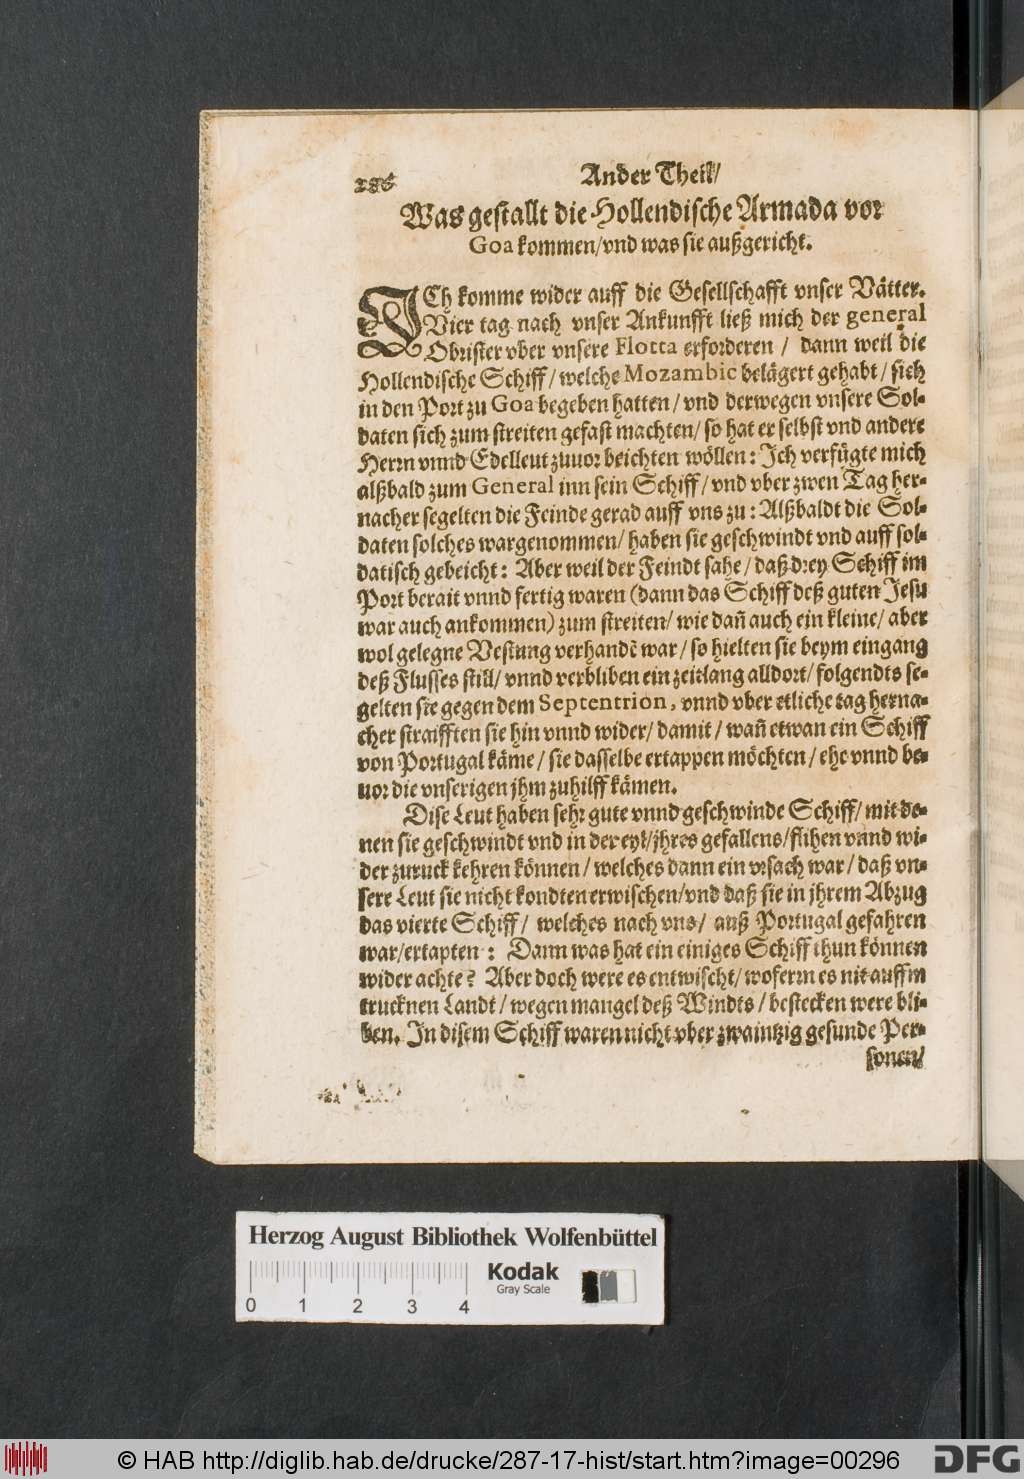 286 Ander Theil/
Was gestallt die Hollendische Armada vor
Goa kommen/vnd was sie außgericht.
ICh komme wider auff die Gesellschafft vnser Vätter.
Vier tag nach vnser Ankunfft ließ mich der general
Obrister vber vnsere Flotta erforderen / dann weil die
Hollendische Schiff/welche Mozambic belägert gehabt/sich
in den Port zu Goa begeben hatten/vnd derwegen vnsere Sol-
daten sich zum streiten gefast machten/so hat er selbst vnd andere
Herrn vnnd Edelleut zuuor beichten wöllen: Ich verfügte mich
alßbald zum General inn sein Schiff/vnd vber zwen Tag her-
nacher segelten die Feinde gerad auff vns zu: Alßbaldt die Sol-
daten solches wargenommen/haben sie geschwindt vnd auff sol-
datisch gebeicht: Aber weil der Feindt sahe/daß drey Schiff im
Port berait vnnd fertig waren (dann das Schiff deß guten Jesu
war auch ankommen) zum streiten/wie dañ auch ein kleine/aber
wol gelegne Vestung verhandẽ war/so hielten sie beym eingang
deß Flusses still/vnnd verbliben ein zeitlang alldort/folgendts se-
gelten sie gegen dem Septentrion, vnnd vber etliche tag herna-
cher straifften sie hin vnnd wider/damit/wañ etwan ein Schiff
von Portugal käme/sie dasselbe ertappen möchten/ehe vnnd be-
uor die vnserigen jhm zuhilff kämen.
Dise Leut haben sehr gute vnnd geschwinde Schiff/mit de-
nen sie geschwindt vnd in der eyl/jhres gefallens/flihen vnnd wi-
der zuruck kehren können/welches dann ein vrsach war/daß vn-
sere Leut sie nicht kondten erwischen/vnd daß sie in jhrem Abzug
das vierte Schiff/ welches nach vns/ auß Portugal gefahren
war/ertapten: Dann was hat ein einiges Schiff thun können
wider achte? Aber doch were es entwischt/woferrn es nit auff m
trucknen Landt/wegen mangel deß Windts/bestecken were bli-
ben. In disem Schiff waren nicht vber zwaintzig gesunde Per-
sonen/
Herzog August Bibliothek Wolfenbüttel
Kodak
Gray Scale
0 1 2 3 4
© HAB http://diglib.hab.de/drucke/287-17-hist/start.htm?image=00296 DFG